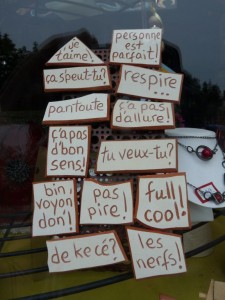 je
t'aime!
personne
est
parfait!
ça s'peut-tu?
respire...
pantoute
ç'a pas
d'allure!
ç'a pas
d'bon
sens!
tu veux-tu?
bin
voyon
don'!
pas
pire!
full
cool!
de ke cé?
les
nerfs!